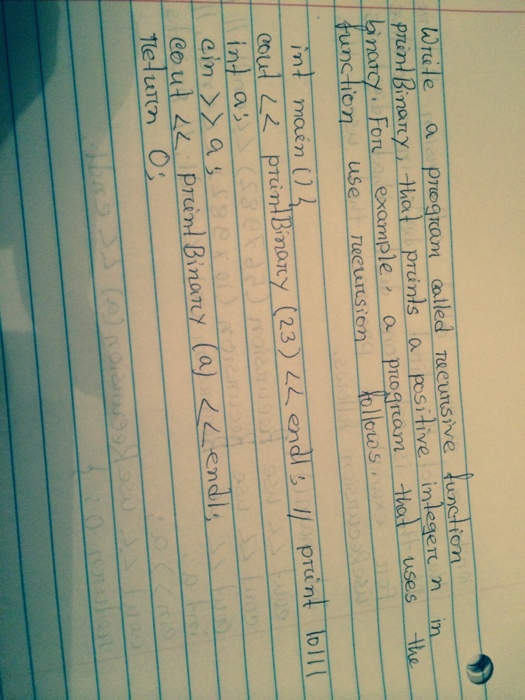 Write a program called recursive function
printBinary, that prints a positive integer n in
binary. For example, a program that uses the
function use recursion follows.
int main () {
cout << printBinary (23) << endl; // print 10111
int a;
cin >> a;
cout << printBinary (a) << endl;
return 0;